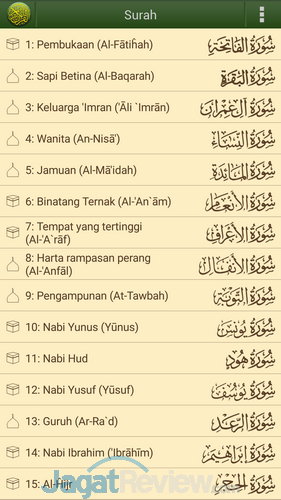 Surah
1: Pembukaan (Al-Fātiĥah) سُورَةُ الفَاتِحَةِ
2: Sapi Betina (Al-Baqarah) سُورَةُ البَقَرَةِ
3: Keluarga 'Imran ('Āli `Imrān) سُورَةُ آلِ عِمْرَان
4: Wanita (An-Nisā') سُورَةُ النِّسَاءِ
5: Jamuan (Al-Mā'idah) سُورَةُ المَائِدَةِ
6: Binatang Ternak (Al-'An`ām) سُورَةُ الأَنْعَامِ
7: Tempat yang tertinggi
(Al-'A`rāf) سُورَةُ الأَعْرَافِ
8: Harta rampasan perang
(Al-'Anfāl) سُورَةُ الأَنْفَالِ
9: Pengampunan (At-Tawbah) سُورَةُ التَّوْبَةِ
10: Nabi Yunus (Yūnus) سُورَةُ يُونُسَ
11: Nabi Hud سُورَةُ هُودٍ
12: Nabi Yusuf (Yūsuf) سُورَةُ يُوسُفَ
13: Guruh (Ar-Ra`d) سُورَةُ الرَّعْدِ
14: Nabi Ibrahim ('Ibrāhīm) سُورَةُ إِبْرَاهِيمَ
15: Al-Ĥijr سُورَةُ الحِجْرِ
JagatReview.com